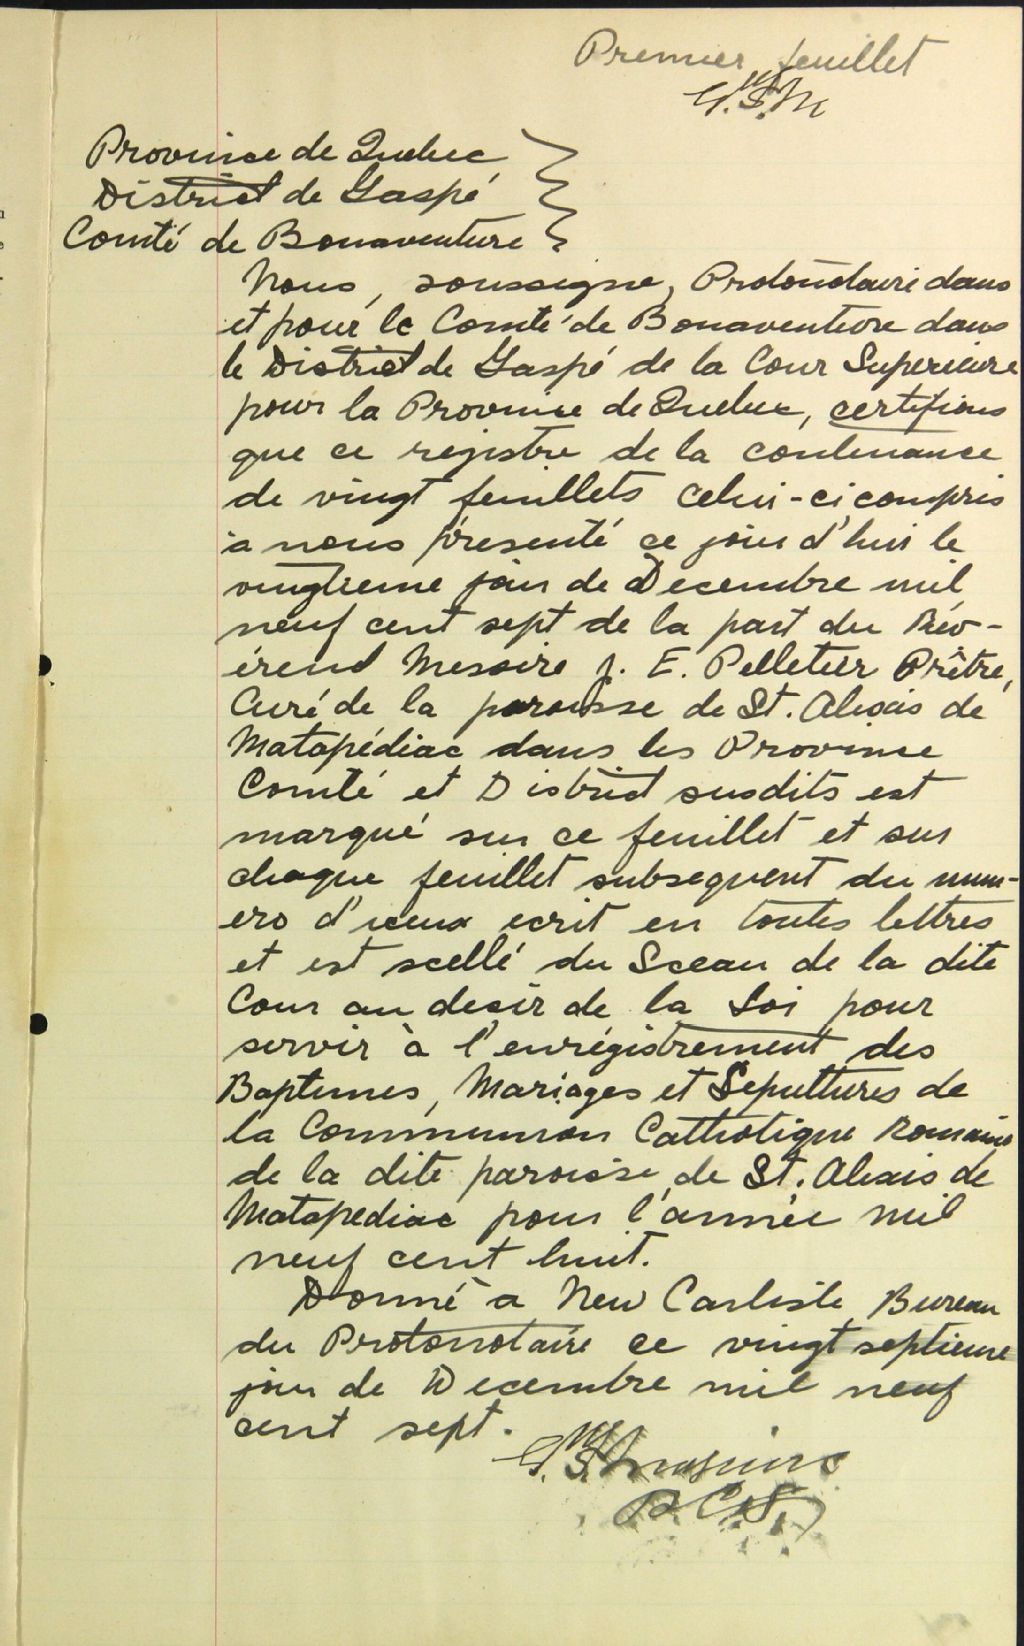 Premier feuillet
G.S.M
Province de Quebec
District de Gaspé
Comté de Bonaventure
Nous, soussigne, Protonotaire dans
et pour le Comté de Bonaventure dans
le District de Gaspé de la Cour Superieure
pour la Province de Quebec, certifions
que ce registre de la contenance
de vingt feuillets celui-ci compris
a nous présenté ce jour d'hui le
vingtieme jour de Decembre mil
neuf cent sept de la part du Rév-
érend Messire J. E. Pelletier Prêtre,
Curé de la paroisse de St. Alexis de
Matapédiac dans les Province
Comté et District susdits est
marqué sur ce feuillet et sur
chaque feuillet subsequent du num-
ero d'iceux ecrit en toutes lettres
et est scellé du Sceau de la dite
Cour au desir de la Loi pour
servir à l'enrégistrement des
Baptemes, Mariages et Sepultures de
la Communion Catholique Romaine
de la dite paroisse de St. Alexis de
Matapediac pour l'année mil
neuf cent huit.
Donné a New Carlisle Bureau
du Protonotaire ce vingt septieme
jour de Decembre mil neuf
cent sept.
P.C.S.